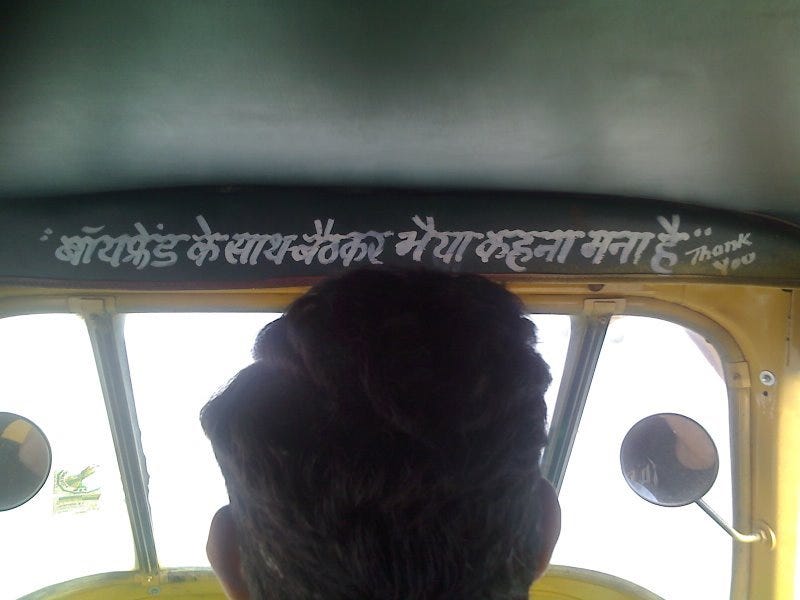 "बॉयफ्रेंड के साथ बैठकर भैया कहना मना है" Thank
You